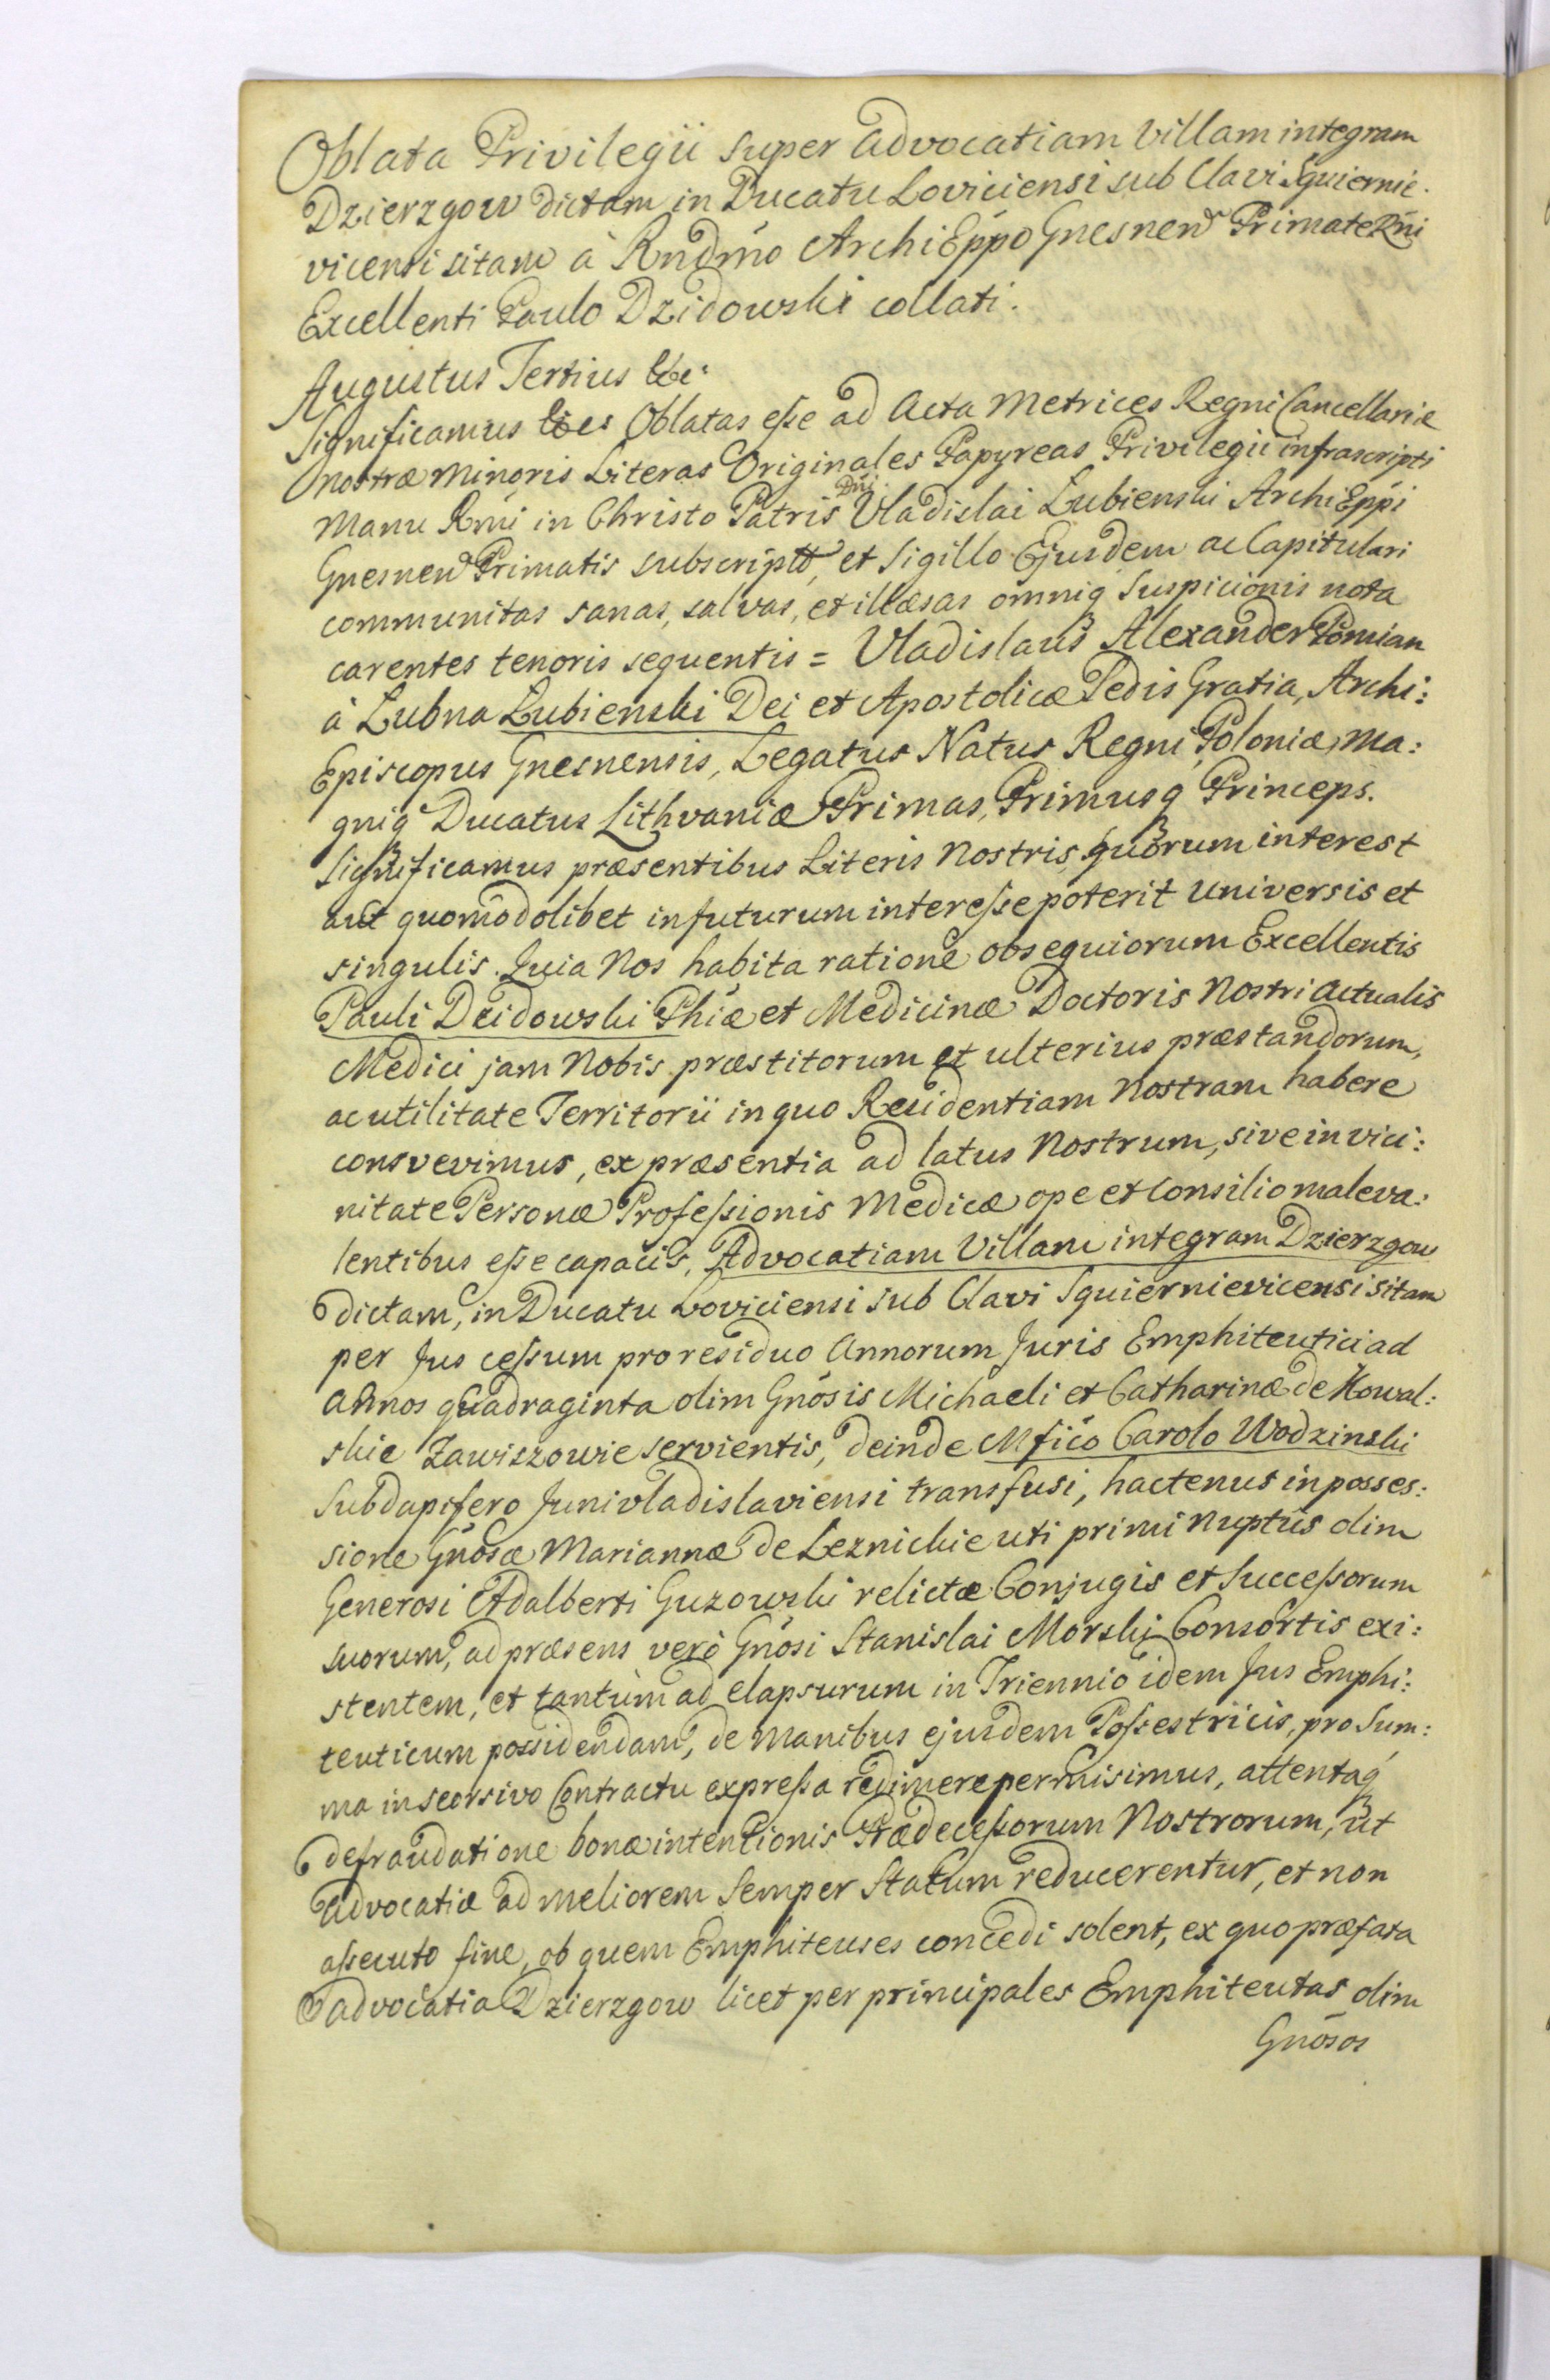 Oblata Privilegii super Advocatiam Villam integram
Dzierzgow dictam in Ducatu Loviciensi sub Clavi Squiernie-
vicensi sitam à Rndmo ArchiEppo Gnesnen Primate Rni
Excellenti Paulo Dzidowski collati.
Augustus Tertius &c:
Significamus &c: Oblatas esse ad Acta Metrices Regni Cancellariæ
Nostræ Minoris Literas Originales Papyreas Privilegii infrascripti
Manu Rmi in Christo Patris Dni Vladislai Łubienski ArchiEppi
Gnesnen Primatis subscriptt, et Sigillo Ejusdem ac Capitulari
communitas sanas, salvas, et illæsas omniq Suspicionis nota
carentes tenoris sequentis = Vladislaus Alexander Pomian
à Łubna Łubienski Dei et Apostolicæ Sedis Gratia, Archi:
Episcopus Gnesnensis, Legatus Natus Regni Poloniæ, Ma:
gniq Ducatus Lithvaniæ Primas, Primusq Princeps.
Significamus præsentibus Literis Nostris, quorum interest
aut quomodolibet in futurum interesse poterit Universis et
singulis. Quia Nos habita ratione obsequiorum Excellentis
Pauli Dzidowski Phiæ et Medicinæ Doctoris Nostri Actualis
Medici jam Nobis præstitorum et ulterius præstandorum,
ac utilitate Territorii in quo Residentiam Nostram habere
consvevimus, ex præsentia ad latus Nostrum, sive in vici:
nitate Personæ Professionis Medicæ ope et Consilio maleva:
lentibus esse capacis, Advocatiam Villam integram Dzierzgow
dictam, in Ducatu Loviciensi sub Clavi Squiernievicensi sitam
per Jus cessum pro residuo Annorum Juris Emphiteutici ad
Annos quadraginta olim Gnosis Michaeli et Catharinæ de Kowal:
skie Zawiszowie servientis, deinde Mfico Carolo Wodzinski
Subdapifero Junivladislaviensi transfusi, hactenus in posses:
sione Gnosæ Mariannæ de Leznickie uti primi Nuptus olim
Generosi Adalberti Guzowski relictæ Conjugis et Successorum
suorum, ad præsens verò Gnosi Stanislai Morski Consortis exi:
stentem, et tantùm ad elapsurum in Triennio idem Jus Emphi:
teuticum possidendam, de Manibus ejusdem Possestricis, pro Sum:
ma in seorsivo Contractu expressa redimere permisimus, attentaq
defraudatione bonæ intentionis Prædecessorum Nostrorum, ut
Advocatiæ ad meliorem Semper Statum reducerentur, et non
assecuto fine, ob quem Emphiteuses concedi solent, ex quo præfata
Advocatia Dzierzgow licet per principales Emphiteutas olim
Gnosos